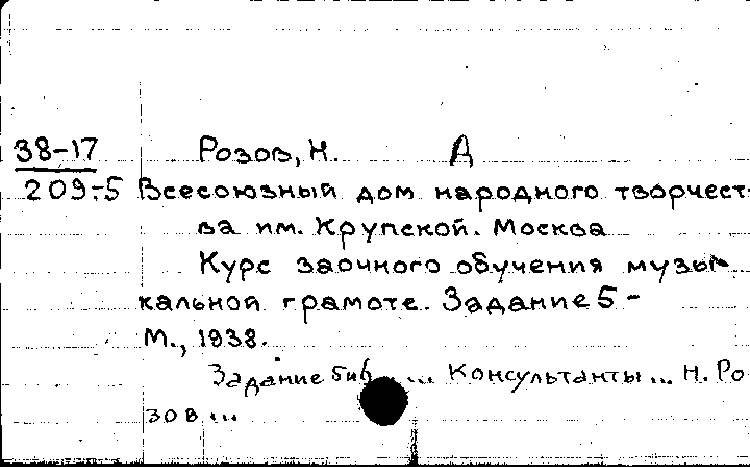 38-17 Розов, Н. А
209-5 Всесоюзный дом народного творчест-
ва им. Крупской. Москва
Курс заочного обучения музы-
кальной грамоте. Задание 5 -
М., 1938.
Задание 5и6 ... Консультанты... Н. Ро
зов ...